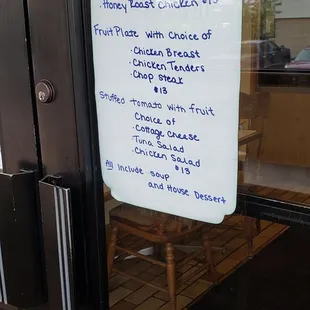 · Honey Roast Chicken $13
Fruit Plate with Choice of
· Chicken Breast
· Chicken Tenders
· Chop steak
$13
Stuffed tomato with fruit
Choice of
· Cottage Cheese
Tuna Salad
· Chicken Salad
$13
All Include soup
and House Dessert